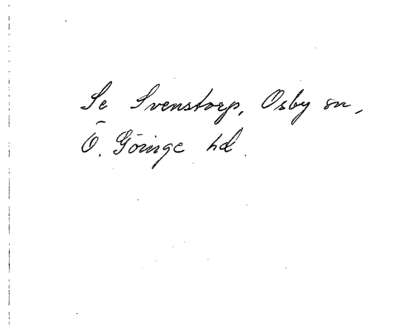 Se Svenstorp, Osby sn,
Ö. Göinge hd.